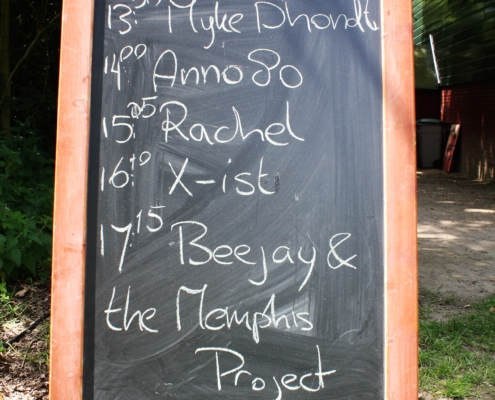 13: Myke Dhondt
14:00 Anno 80
15:05 Rachel
16:10 X-ist
17:15 Beejay &
the Memphis
Project